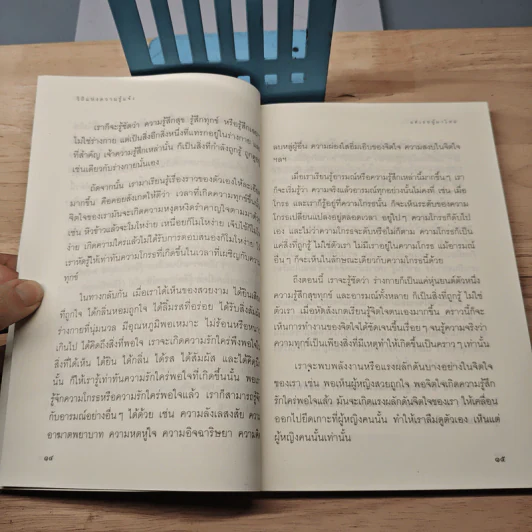 เราก็จะรู้ชัดว่า ความรู้สึกสุข รู้สึกทุกข์ หรือรู้สึกเฉยๆ
ไม่ใช่ร่างกาย แต่เป็นสิ่งอีกสิ่งหนึ่งที่แทรกอยู่ในร่างกาย และ
ที่สำคัญ เจ้าความรู้สึกเหล่านั้น ก็เป็นสิ่งที่กำลังถูกรู้ ถูกดู
เช่นเดียวกับร่างกายนั่นเอง
ถัดจากนั้น เรามาเรียนรู้เรื่องราวของตัวเองให้ละเอียด
มากขึ้น คือคอยสังเกตให้ดีว่า เวลาที่เกิดความทุกข์ขึ้น
จิตใจของเรามันจะเกิดความหงุดหงิดรำคาญใจตามมาด้วย
เช่น หิวข้าวแล้วจะโมโหง่าย เหนื่อยก็โมโหง่าย เจ็บไข้ก็
ง่าย เกิดความใคร่แล้วไม่ได้รับการตอบสนองก็โมโหง่าย
เราหัดรู้ให้เท่าทันความโกรธที่เกิดขึ้นในเวลาที่เผชิญกับความ
ทุกข์
ในทางกลับกัน เมื่อเราได้เห็นของสวยงาม ได้ยินเสียง
ที่ถูกใจ ได้กลิ่นหอมถูกใจ ได้ลิ้มรสที่อร่อย ได้รับสิ่งสัมผัส
ร่างกายที่นุ่มนวล มีอุณหภูมิพอเหมาะ ไม่ร้อนหรือหนาว
เกินไป ได้คิดถึงสิ่งที่พอใจ เราจะเกิดความรักใคร่พึงพอใจใน
สิ่งที่ได้เห็น ได้ยิน ได้กลิ่น ได้รส ได้สัมผัส และได้คิดนึก
นั้น ก็ให้เรารู้เท่าทันความรักใคร่พอใจที่เกิดขึ้นนั้น พอเรา
รู้จักความโกรธหรือความรักใคร่พอใจแล้ว เราก็สามารถรู้จัก
กับอารมณ์อย่างอื่นๆ ได้ด้วย เช่น ความลังเลสงสัย ความ
อาฆาตพยาบาท ความหดหู่ใจ ความอิจฉาริษยา ความคิด
๑๔
ลบหลู่ผู้อื่น ความผ่องใสอิ่มเอิบของจิตใจ ความสงบในจิตใจ
ฯลฯ
เมื่อเราเรียนรู้อารมณ์หรือความรู้สึกเหล่านี้มากขึ้นๆ เรา
ก็จะเริ่มรู้ว่า ความจริงแล้วอารมณ์ทุกอย่างนั้นไม่คงที่ เช่น เมื่อ
โกรธ และเราก็รู้อยู่ที่ความโกรธนั้น ก็จะเห็นระดับของความ
โกรธเปลี่ยนแปลงอยู่ตลอดเวลา อยู่ไปๆ ความโกรธก็ดับไป
เอง และไม่ว่าความโกรธจะดับหรือไม่ก็ตาม ความโกรธก็เป็น
แค่สิ่งที่ถูกรู้ ไม่ใช่ตัวเรา ไม่มีเราอยู่ในความโกรธ แม้อารมณ์
อื่นๆ ก็จะเห็นในลักษณะเดียวกับความโกรธนี้ด้วย
ถึงตอนนี้ เราจะรู้ชัดว่า ร่างกายก็เป็นแค่หุ่นยนต์ตัวหนึ่ง
ความรู้สึกสุขทุกข์ และอารมณ์ทั้งหลาย ก็เป็นสิ่งที่ถูกรู้ ไม่ใช่
ตัวเรา เมื่อหัดสังเกตเรียนรู้จิตใจตนเองมากขึ้น คราวนี้ก็จะ
เห็นการทำงานของจิตใจได้ชัดเจนขึ้นเรื่อยๆ จนรู้ความจริงว่า
ความทุกข์เป็นเพียงสิ่งที่มีเหตุทำให้เกิดขึ้นเป็นคราวๆ เท่านั้น
เราจะพบพลังงานหรือแรงผลักดันบางอย่างในจิตใจ
ของเรา เช่น พอเห็นผู้หญิงสวยถูกใจ พอจิตใจเกิดความรู้สึก
รักใคร่พอใจแล้ว มันจะเกิดแรงผลักดันจิตใจของเรา ให้เคลื่อน
ออกไปยึดเกาะที่ผู้หญิงคนนั้น ทำให้เราลืมดูตัวเอง เห็นแต่
ผู้หญิงคนนั้นเท่านั้น
๑๕